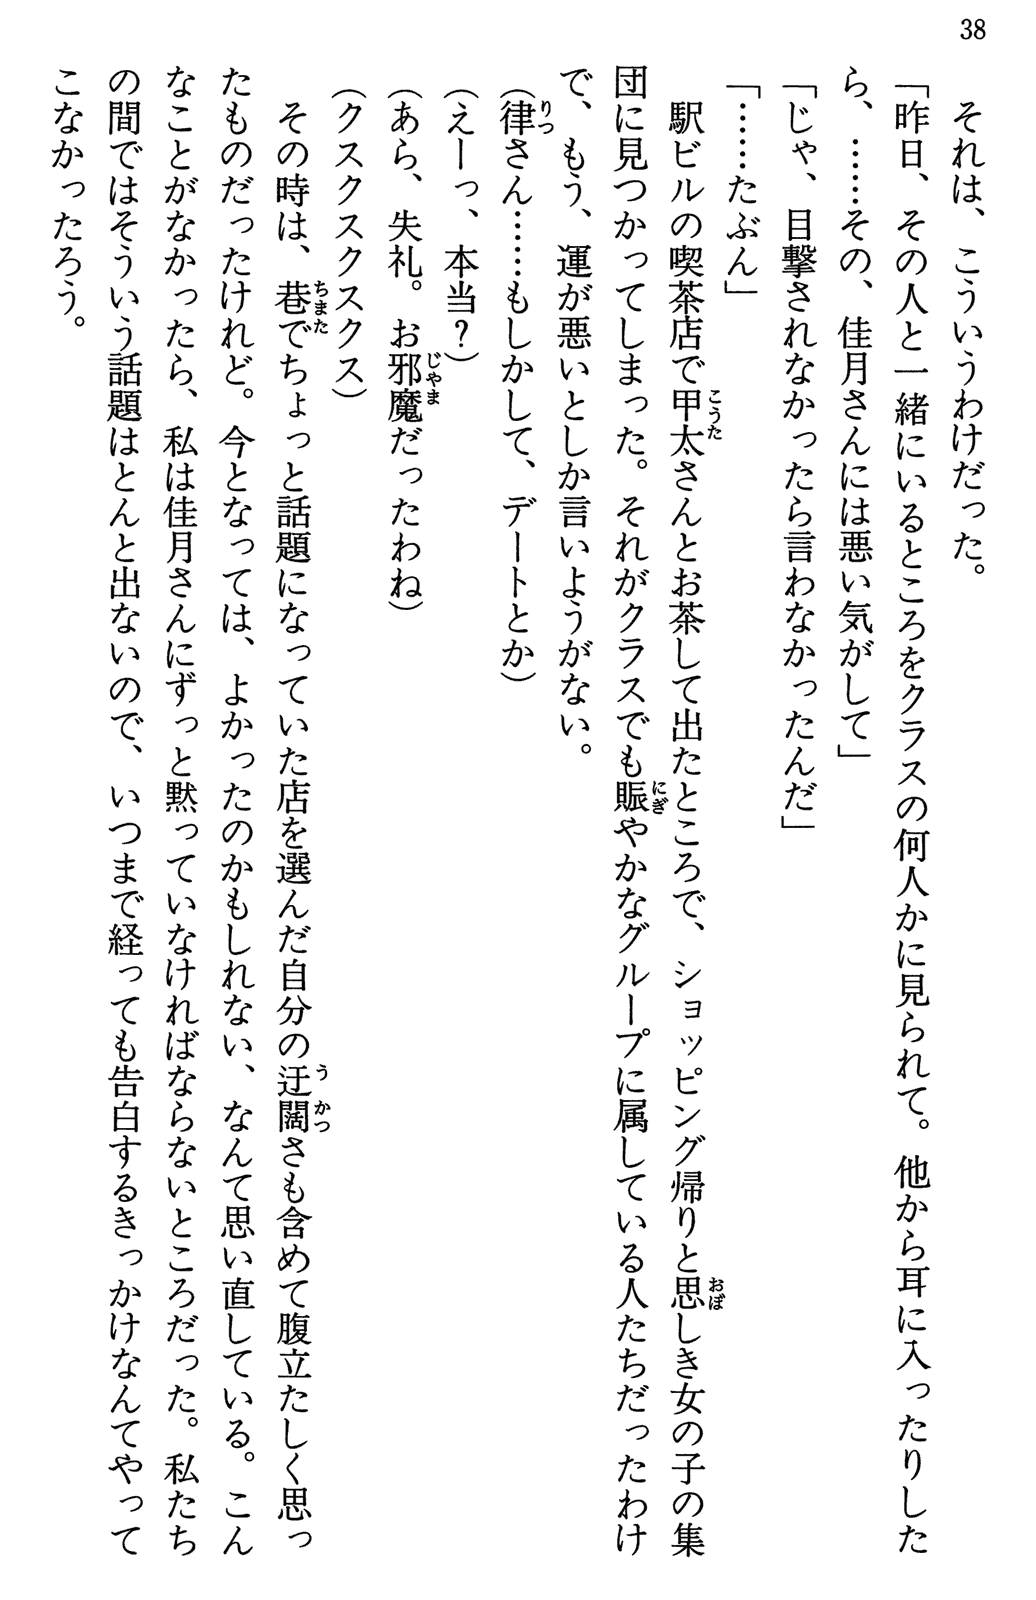 38
それは、こういうわけだった。
「昨日、その人と一緒にいるところをクラスの何人かに見られて。他から耳に入ったりした
ら、……その、佳月さんには悪い気がして」
「じゃ、目撃されなかったら言わなかったんだ」
「……たぶん」
駅ビルの喫茶店で甲太さんとお茶して出たところで、ショッピング帰りと思しき女の子の集
団に見つかってしまった。それがクラスでも賑やかなグループに属している人たちだったわけ
で、もう、運が悪いとしか言いようがない。
(律さん……もしかして、デートとか)
(えーっ、本当?)
(あら、失礼。お邪魔だったわね)
(クスクスクスクス)
その時は、巷でちょっと話題になっていた店を選んだ自分の迂闊さも含めて腹立たしく思っ
たものだったけれど。今となっては、よかったのかもしれない、なんて思い直している。こん
なことがなかったら、私は佳月さんにずっと黙っていなければならないところだった。私たち
の間ではそういう話題はとんと出ないので、いつまで経っても告白するきっかけなんてやって
こなかったろう。